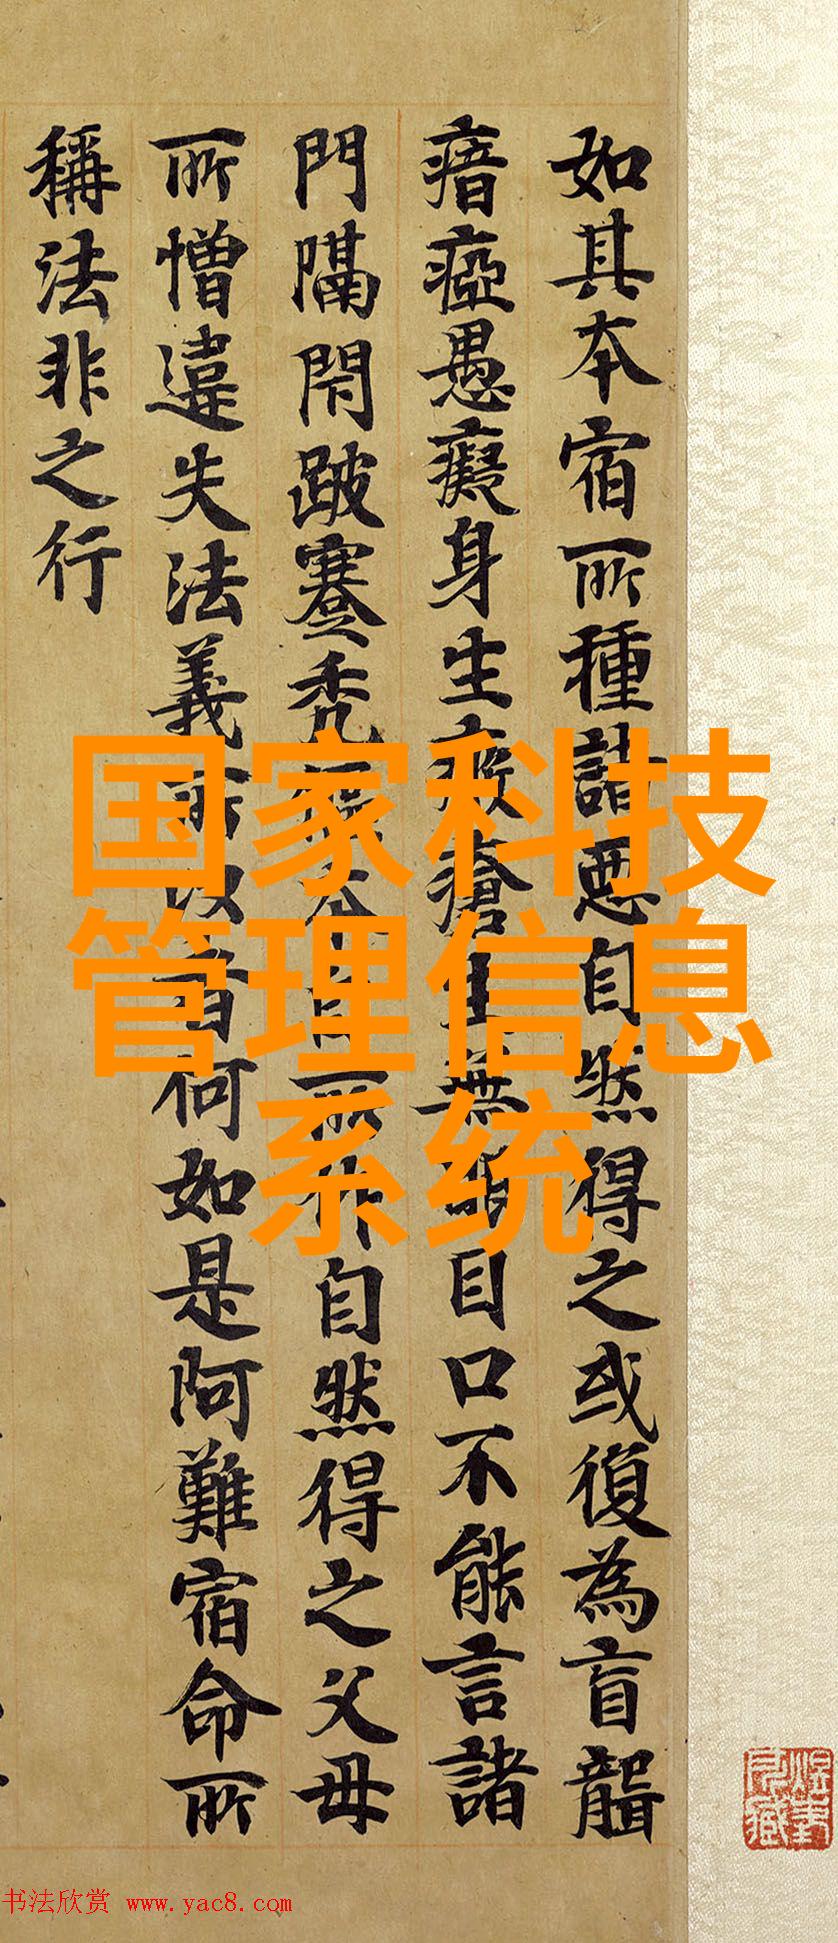 如其本宿所種諸惡自然得之或復為盲聾
瘖瘂愚癡身生瘡生無目口不能言諸
門隔閇跛蹇禿本自所作自然得之父母
所憎違失法義所以者何如是阿難宿命所
稱法非之行
国家科技
管理信息
系统
书法欣赏 www.yac8.com